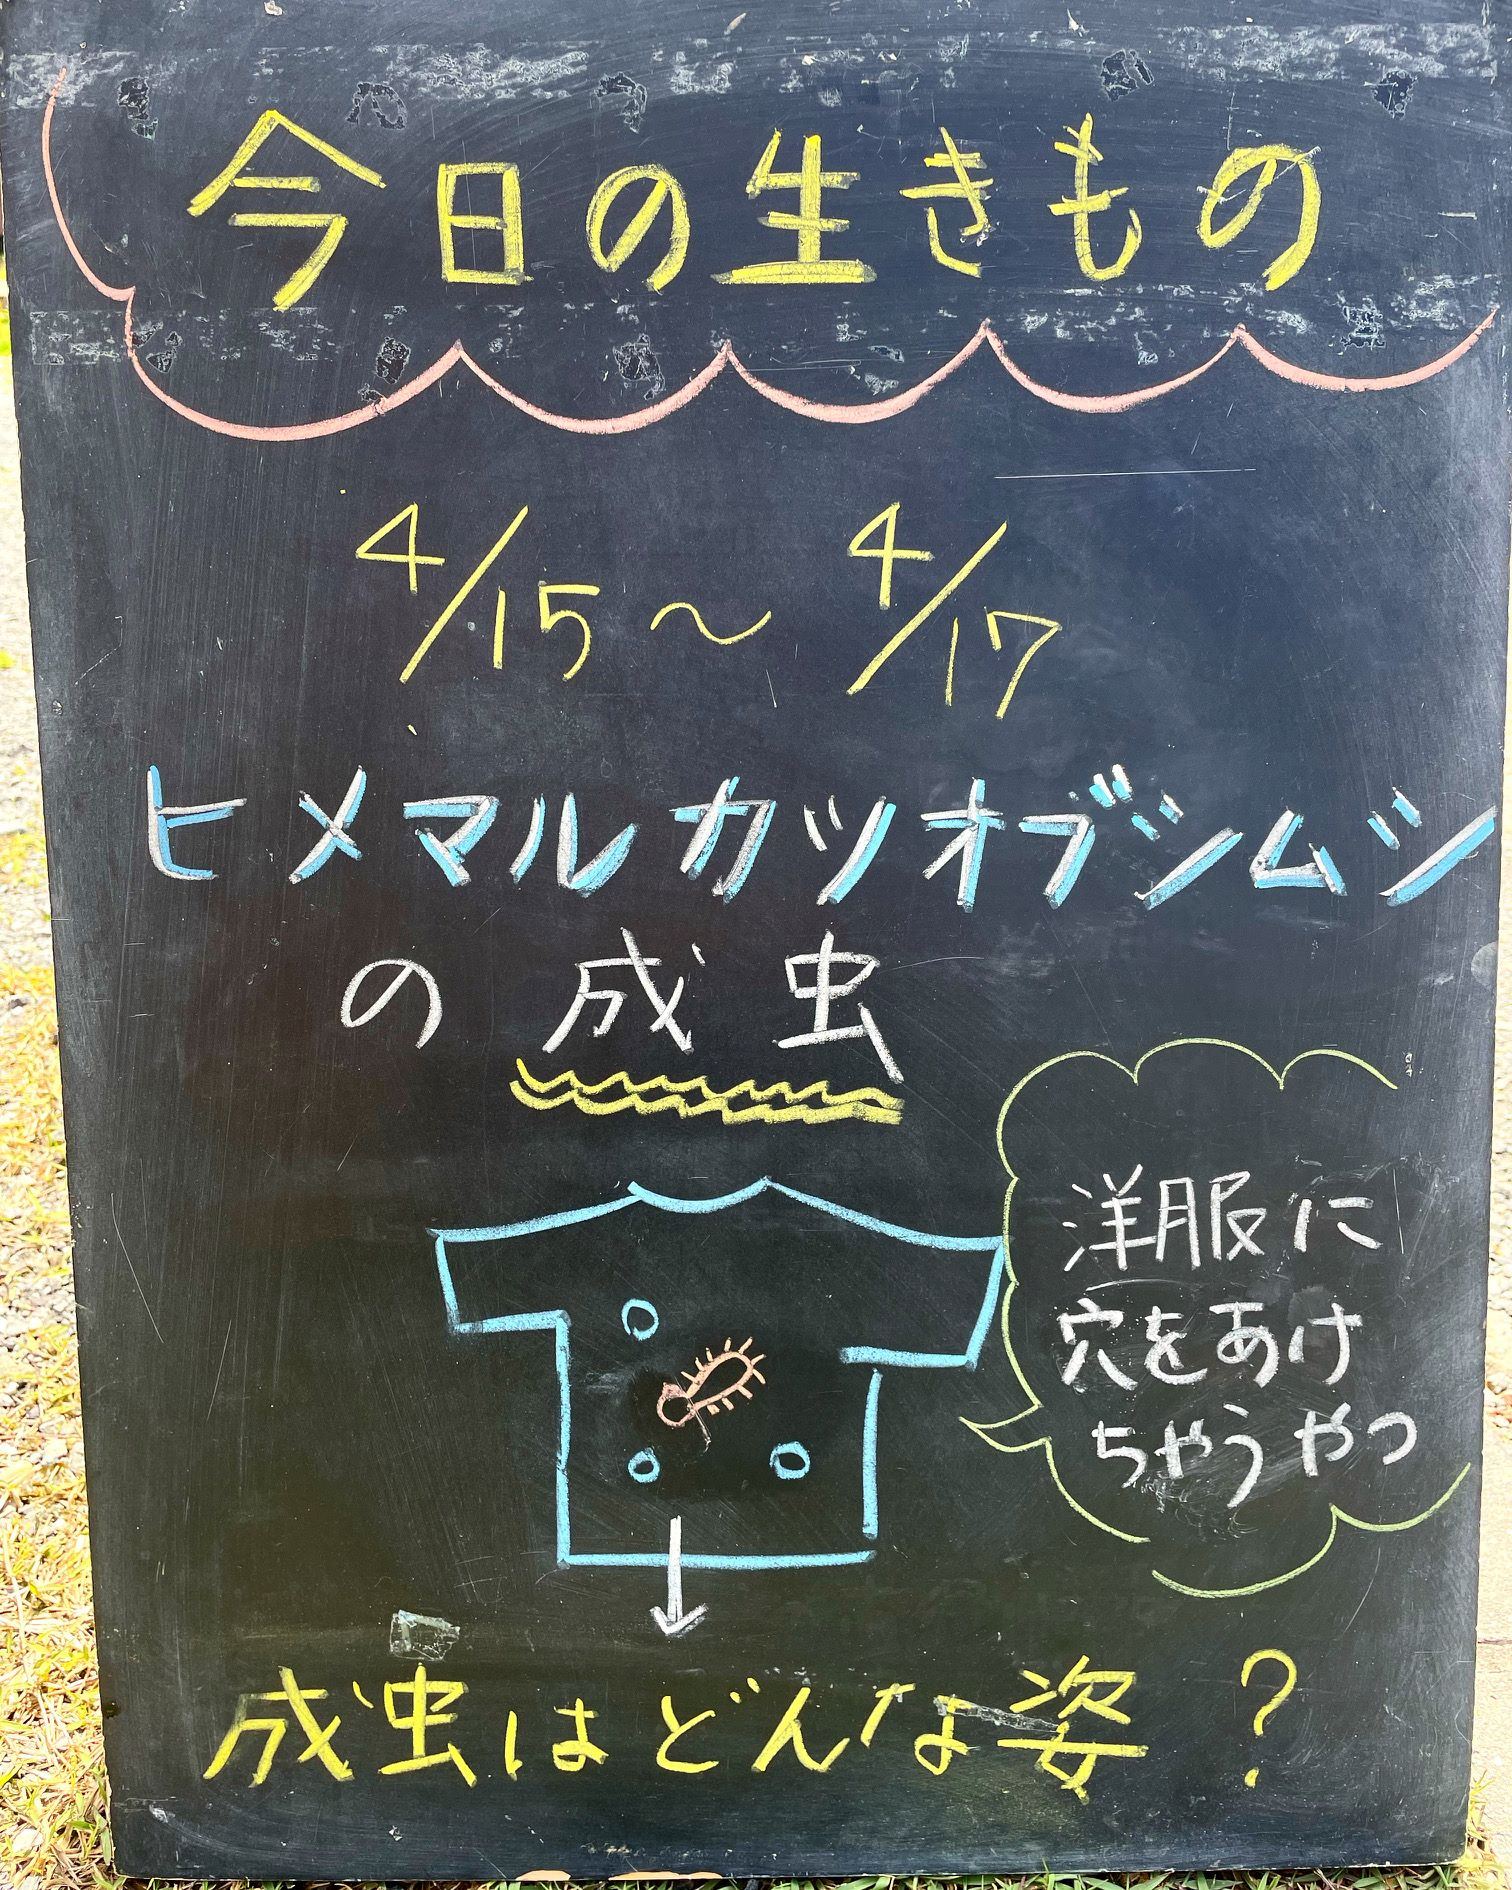 今日の生きもの
4/15〜4/17
ヒメマルカツオブシムシ
の成虫
洋服に
穴をあけ
ちゃうやつ
成虫はどんな姿？